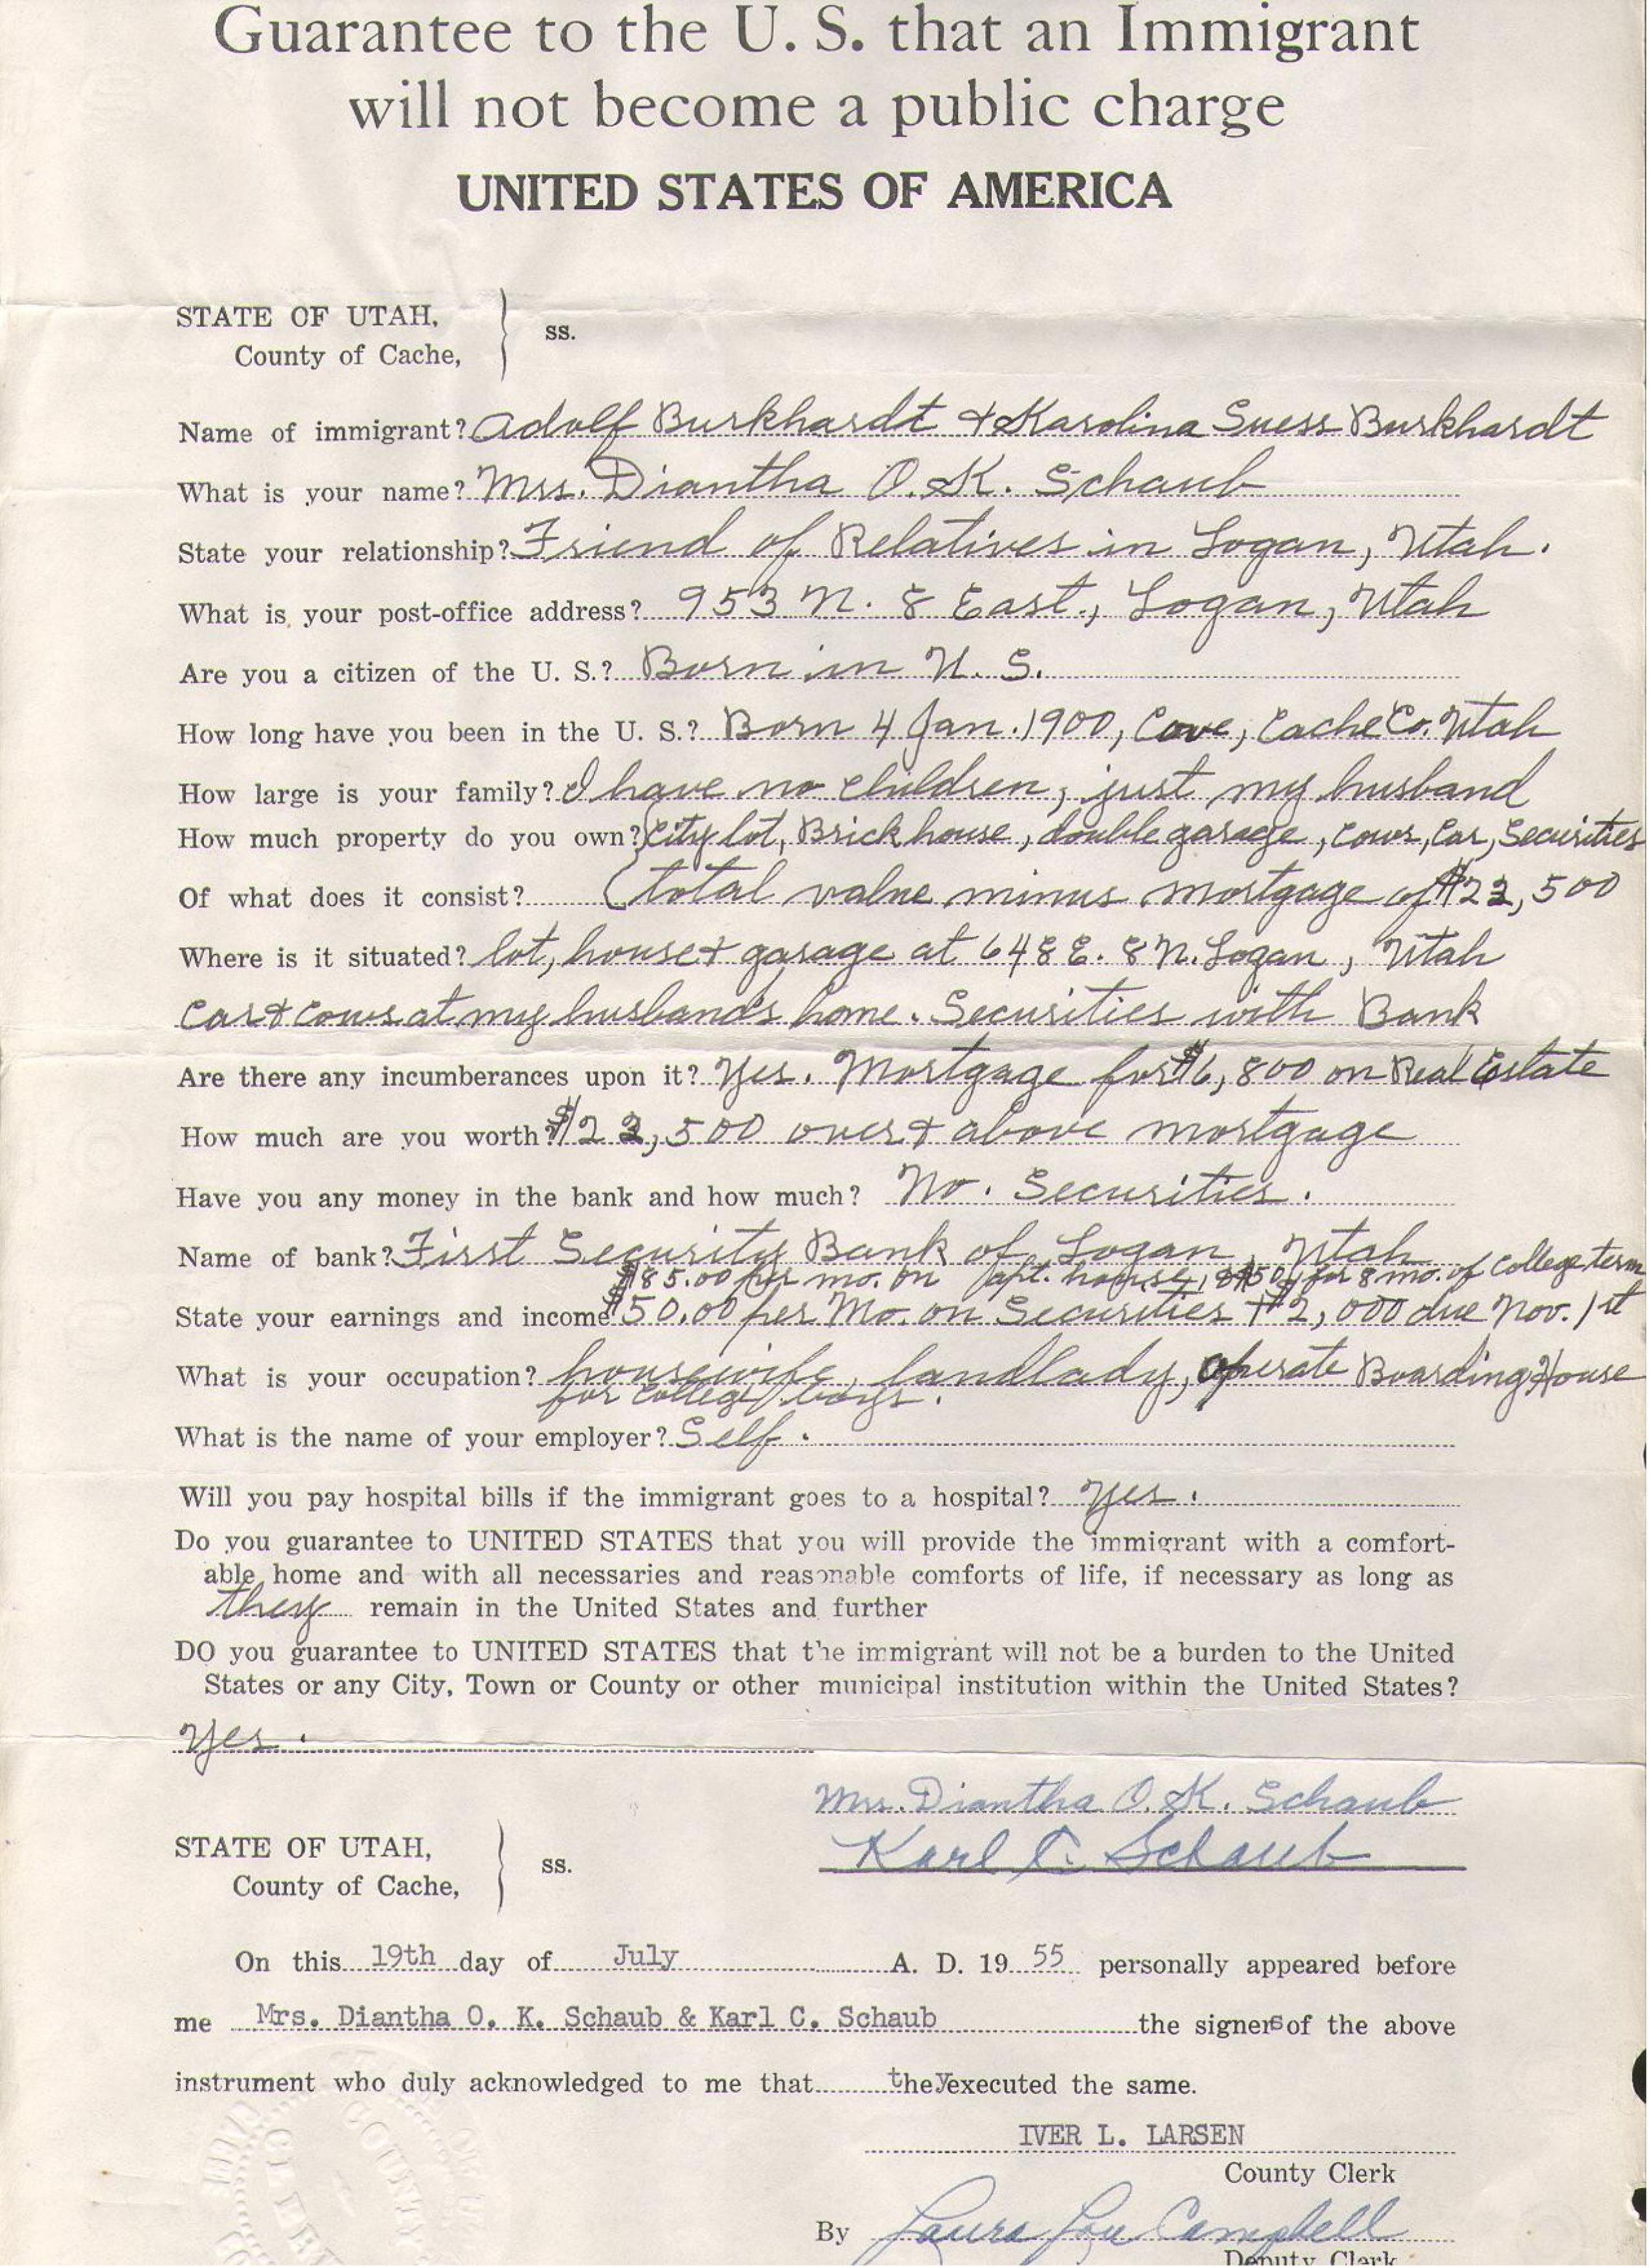 Guarantee to the U. S. that an Immigrant
will not become a public charge
UNITED STATES OF AMERICA
STATE OF UTAH, } ss.
County of Cache,
Name of immigrant? Adolf Burkhardt + Karolina Suess Burkhardt
What is your name? Mrs. Diantha O. K. Schaub
State your relationship? Friend of Relatives in Logan, Utah.
What is your post-office address? 953 N. 8 East., Logan, Utah
Are you a citizen of the U. S.? Born in U. S.
How long have you been in the U. S.? Born 4 Jan. 1900, Cove, Cache Co. Utah
How large is your family? I have no children, just my husband
How much property do you own? City lot, Brick house, double garage, cows, Car, Securities
Of what does it consist? (total value minus mortgage of $22,500
Where is it situated? lot, house + garage at 648 E. 8 N. Logan, Utah
Car + cows at my husband's home. Securities with Bank
Are there any incumberances upon it? Yes. Mortgage for $6,800 on Real Estate
How much are you worth? $22,500 over + above mortgage
Have you any money in the bank and how much? No. Securities.
Name of bank? First Security Bank of Logan, Utah
$85.00 per mo. on apt. house, for 8 mo. of College term
State your earnings and income $50.00 per Mo. on Securities + $2,000 due Nov. 1st
What is your occupation? housewife, landlady, operate Boarding House
for College boys.
What is the name of your employer? Self.
Will you pay hospital bills if the immigrant goes to a hospital? Yes.
Do you guarantee to UNITED STATES that you will provide the immigrant with a comfort-
able home and with all necessaries and reasonable comforts of life, if necessary as long as
they remain in the United States and further
DO you guarantee to UNITED STATES that the immigrant will not be a burden to the United
States or any City, Town or County or other municipal institution within the United States?
Yes.
Mrs. Diantha O. K. Schaub
Karl C. Schaub
STATE OF UTAH, } ss.
County of Cache,
On this 19th day of July A. D. 19 55 personally appeared before
me Mrs. Diantha O. K. Schaub & Karl C. Schaub the signers of the above
instrument who duly acknowledged to me that they executed the same.
IVER L. LARSEN
County Clerk
By Laura Lou Campbell
Deputy Clerk